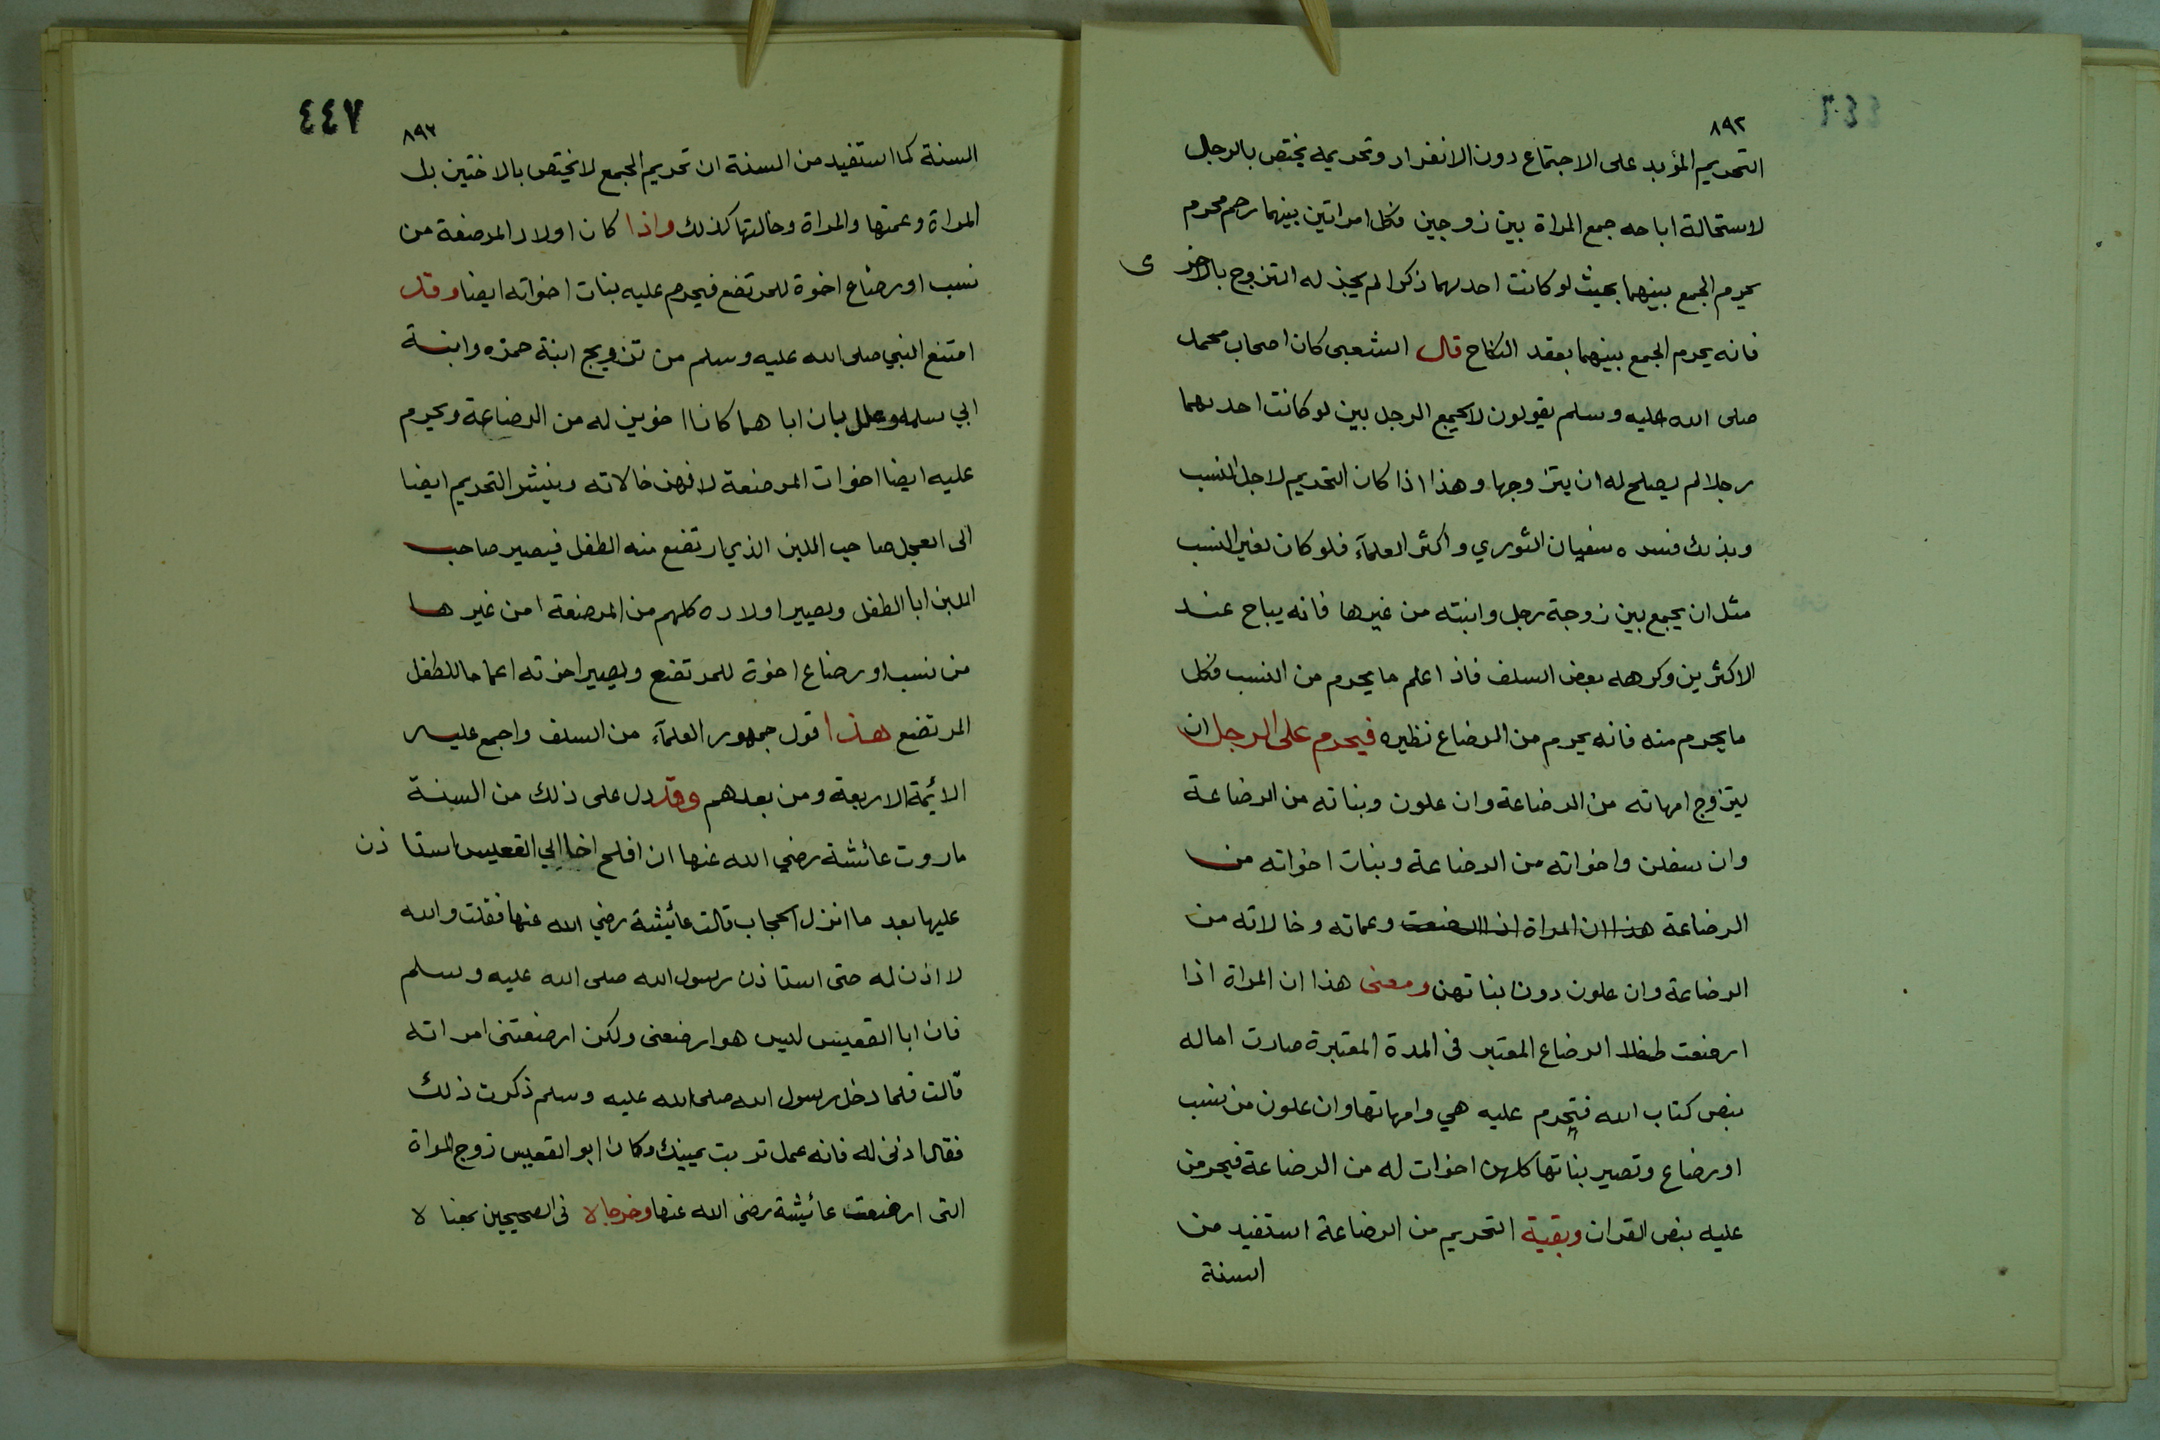 ٨٩٢
التحريم المؤبد على الاجتماع دون الانفراد وتحريمه يختص بالرجل
لاستحالة اباحه جمع المراة بين زوجين فكل امراتين بينهما رحم محرم
يحرم الجمع بينهما بحيث لو كانت احدهما ذكرا لم يجز له التزوج بالاخرى
فانه يحرم الجمع بينهما بعقد النكاح قال الشعبى كان اصحاب محمد
صلى الله عليه وسلم يقولون لا يجمع الرجل بين لو كانت احدهما
رجلا لم يصلح له ان يتزوجها وهذا اذا كان التحريم لاجل النسب
وبذلك فسره سفيان الثوري واكثر العلمآء فلو كان لغير النسب
مثل ان يجمع بين زوجة رجل وابنته من غيرها فانه يباح عند
الاكثرين وكرهه بعض السلف فاذا علم ما يحرم من النسب فكل
ما يحرم منه فانه يحرم من الرضاع نظيره فيحرم على الرجل ان
يتزوج امهاته من الرضاعة وان علون وبناته من الرضاعة
وان سفلن واخواته من الرضاعة وبنات اخواته من
الرضاعة هذا ان المراة اذا ارضعت وعماته وخالاته من
الرضاعة وان علون دون بناتهن ومعنى هذا ان المراة اذا
ارضعت طفلا الرضاع المعتبر فى المدة المعتبرة صارت اما له
بنص كتاب الله فتحرم عليه هي وامهاتها وان علون من نسب
او رضاع وتصير بناتها كلهن اخوات له من الرضاعة فيحرمن
عليه بنص القران وبقية التحريم من الرضاعة استفيد من
السنة
٤٤٧
٨٩٣
السنة كما استفيد من السنة ان تحريم الجمع لا يختص بالاختين بل
المراة وعمتها والمراة وخالتها كذلك واذا كان اولاد المرضعة من
نسب او رضاع اخوة للمرتضع فيحرم عليه بنات اخواته ايضا وقد
امتنع النبي صلى الله عليه وسلم من تزويج ابنة حمزه وابنة
ابي سلمه وعلل بان اباهما كانا اخوين له من الرضاعة ويحرم
عليه ايضا اخوات المرضعة لانهن خالاته وينتشر التحريم ايضا
الى الفحل صاحب اللبن الذي ارتضع منه الطفل فيصير صاحب
اللبن ابا الطفل ويصير اولاده كلهم من المرضعة ا من غيرها
من نسب او رضاع اخوة للمرتضع ويصير اخوته اعماما للطفل
المرتضع هذا قول جمهور العلمآء من السلف واجمع عليه
الائمة الاربعة ومن بعدهم وقد دل على ذلك من السنة
ما روت عائشة رضي الله عنها ان افلح اخا ابي القعيس استاذن
عليها بعد ما انزل الحجاب قالت عائيشة رضي الله عنها فقلت والله
لا اذن له حتى استاذن رسول الله صلى الله عليه وسلم
فان ابا القعيس ليس هو ارضعنى ولكن ارضعتنى امراته
قالت فلما دخل رسول الله صلى الله عليه وسلم ذكرت ذلك
فقال اذنى له فانه عمك تربت يمينك وكان ابو القعيس زوج المراة
التى ارضعت عائيشة رضى الله عنها وخرجاه فى الصحيحين بمعناه